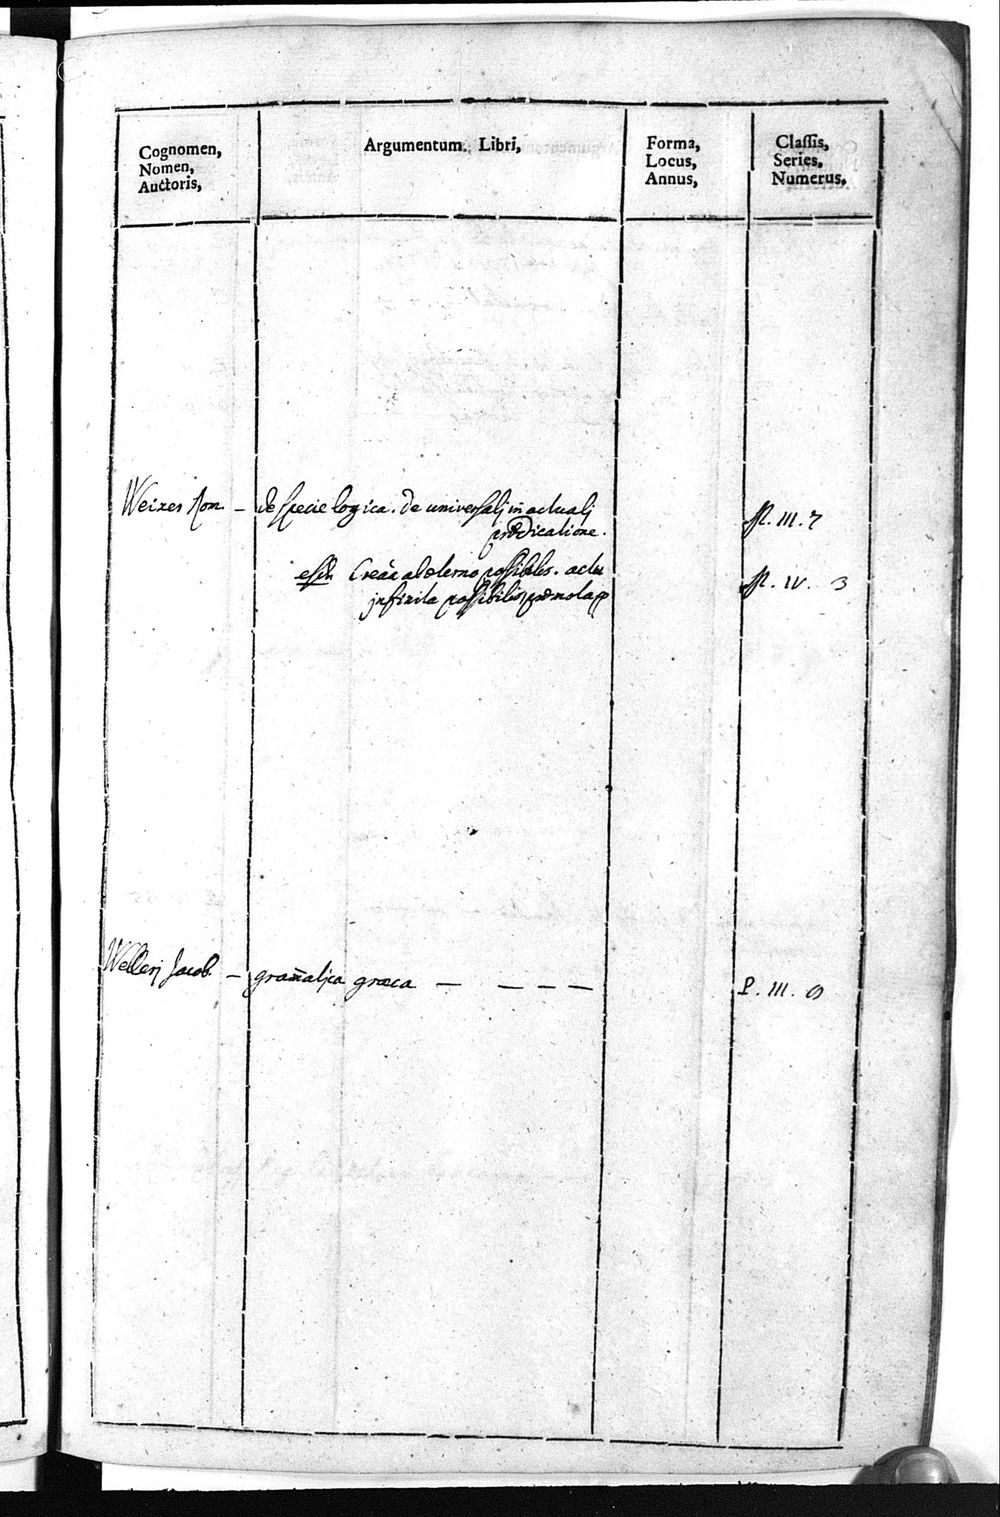 Cognomen,
Nomen,
Auctoris,
Argumentum Libri,
Forma,
Locus,
Annus,
Classis,
Series,
Numerus,
Weixer Rom. — de specie logica. De universalj in actualj
prædicatione.
P. III. 7
Creãa ab æterno possibiles. actu
infinita possibilis
P. IV. 3
Wellerj Jacob — gram̃atjca græca — — — —
P. III. 9